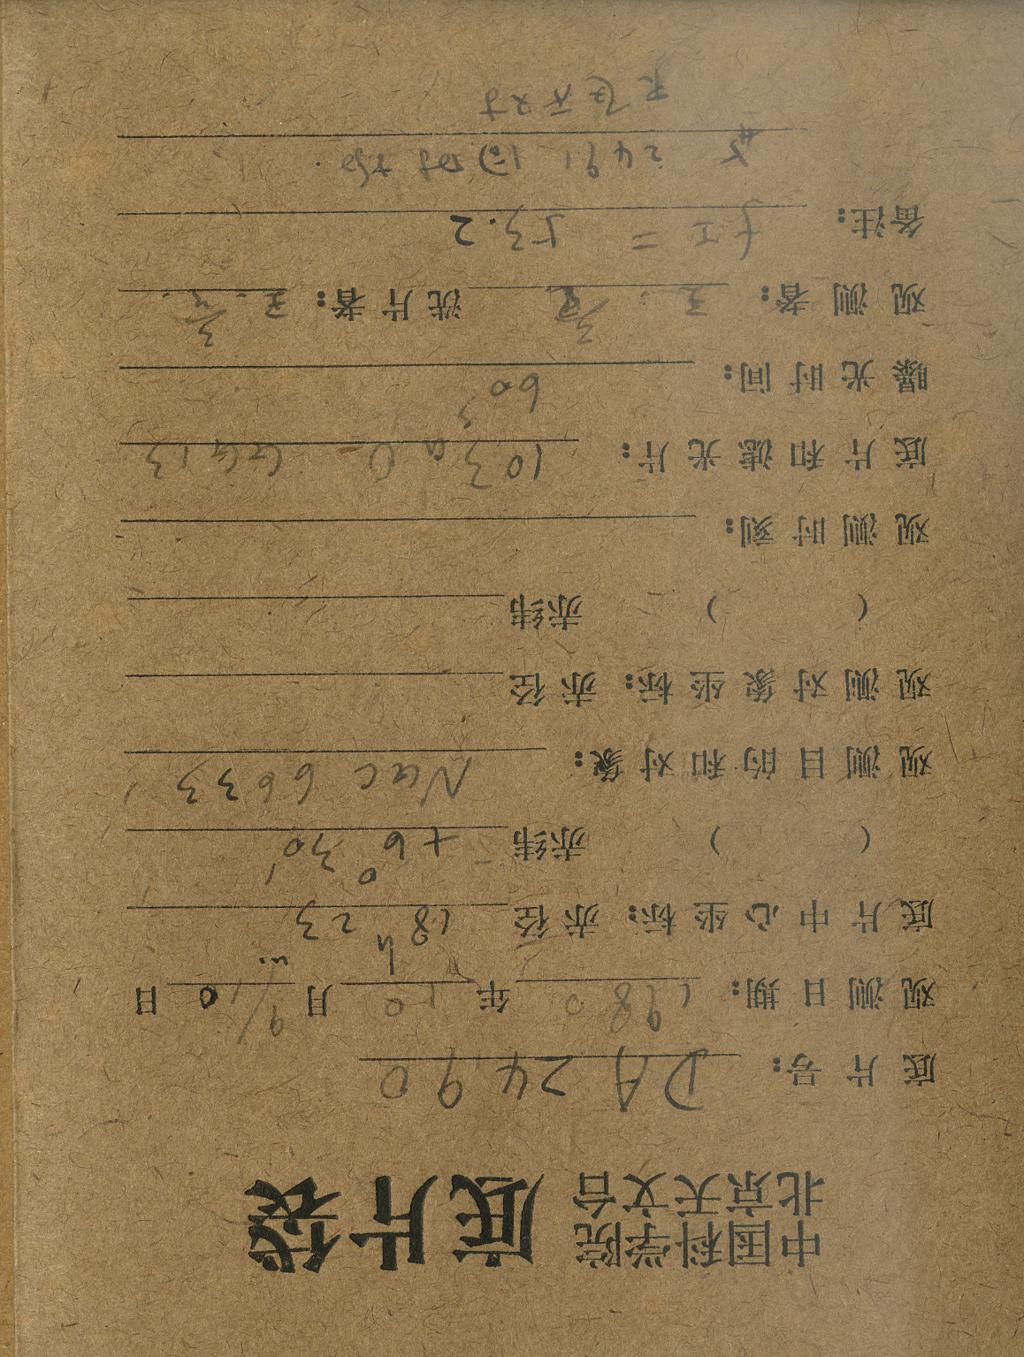 中国科学院
北京天文台 底片袋
底片号: DA 2490
观测日期: 1980 年 10 月 9/10 日
底片中心坐标: 赤径 18h 23m
( ) 赤纬 +6° 30'
观测目的和对象: NGC 6633
观测对象坐标: 赤径
( ) 赤纬
观测时刻:
底片和滤光片: 103aO GG13
曝光时间: 60s
观测者: 王 洗片者: 王
备注: fI = 53.2
2491